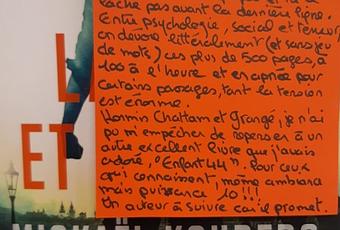 lâche pas avant la dernière ligne.
Entre psychologie, social et terreur
on dévore littéralement (et sans jeu
de mots) ces plus de 500 pages, à
100 à l'heure et en apnée pour
certains passages, tant la tension
est énorme.
Hormis Chattam et Grangé, je n'ai
pu m'empêcher de repenser à un
autre excellent livre que j'avais
adoré, "Enfant 44". Pour ceux
qui connaissent, même ambiance
mais puissance 10 !!!
Un auteur à suivre car il promet.
L
ET